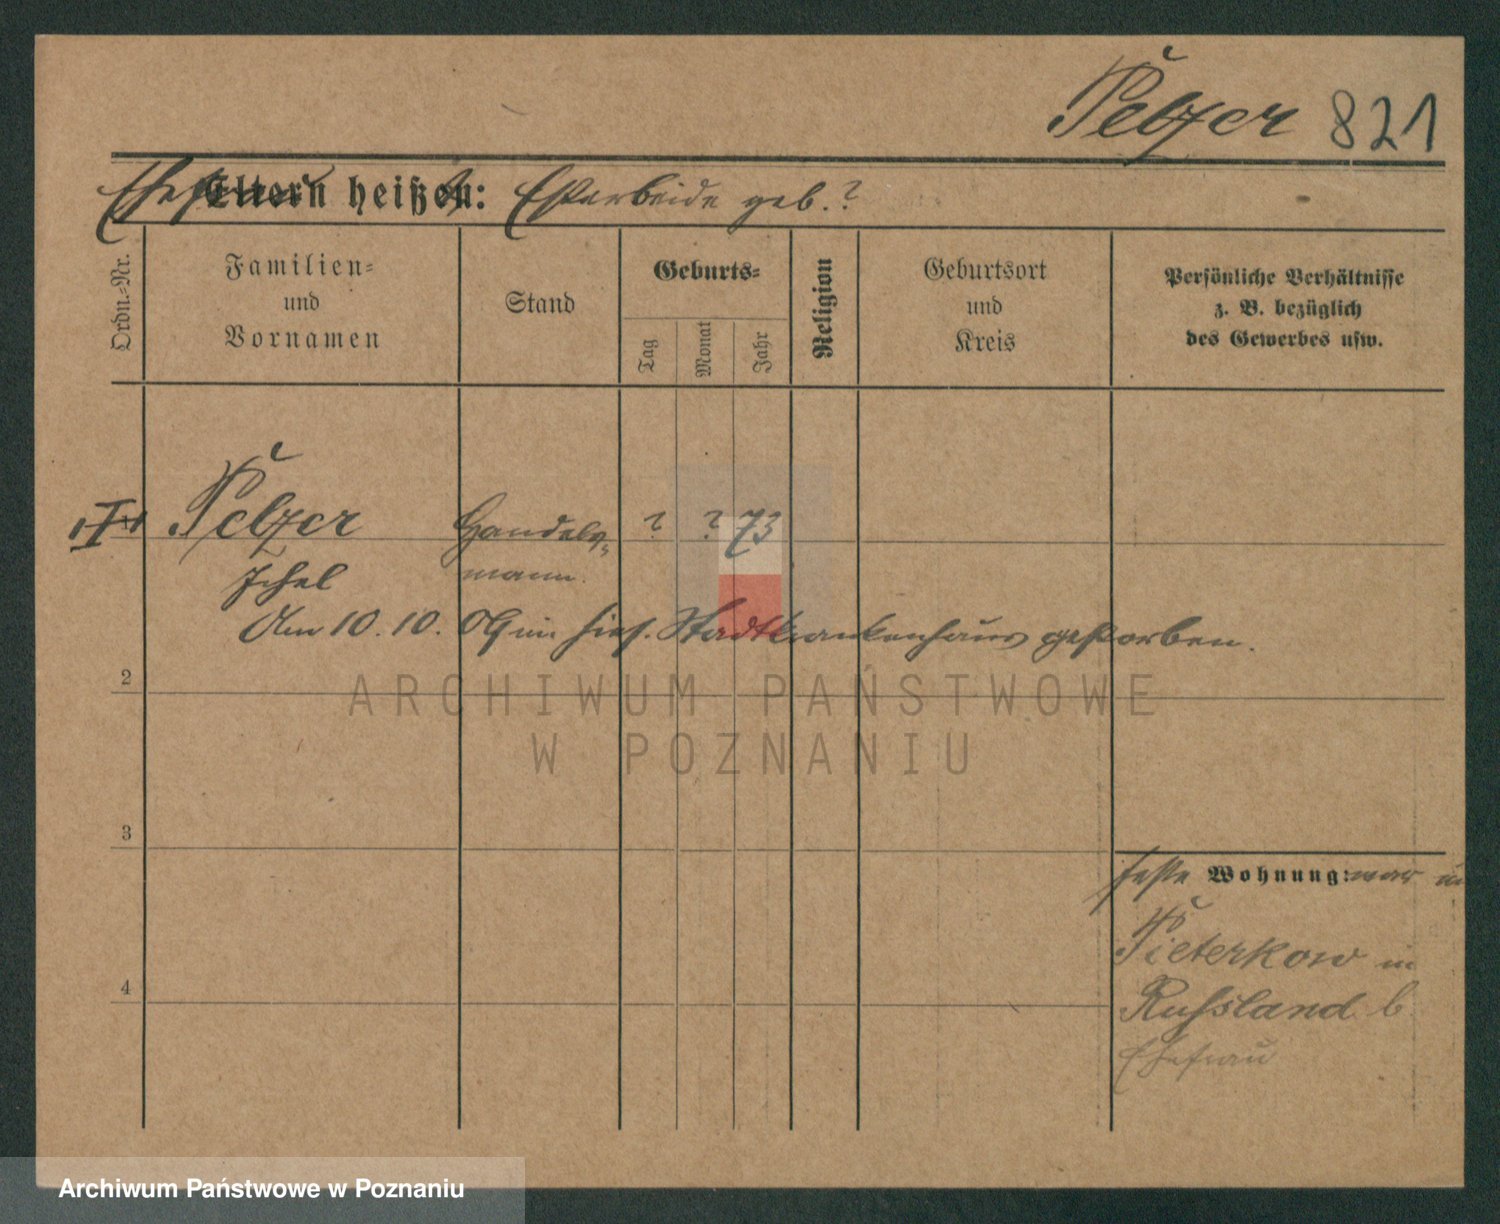 Pelzer 821
Ehefrau Eltern heißen: Estarbeide geb. ?
Ordn.-Nr.
Familien-
und
Vornamen
Stand
Geburts-
Tag
Monat
Jahr
Religion
Geburtsort
und
Kreis
Persönliche Verhältnisse
z. B. bezüglich
des Gewerbes usw.
I Pelzer Handels- ? ? 73
Ichel mann.
Am 10.10.09 im hies. Stadtkrankenhaus gestorben.
2
ARCHIWUM PAŃSTWOWE
W POZNANIU
3
feste Wohnung: war in
Pieterkow in
4
Russland b
Ehefrau
Archiwum Państwowe w Poznaniu